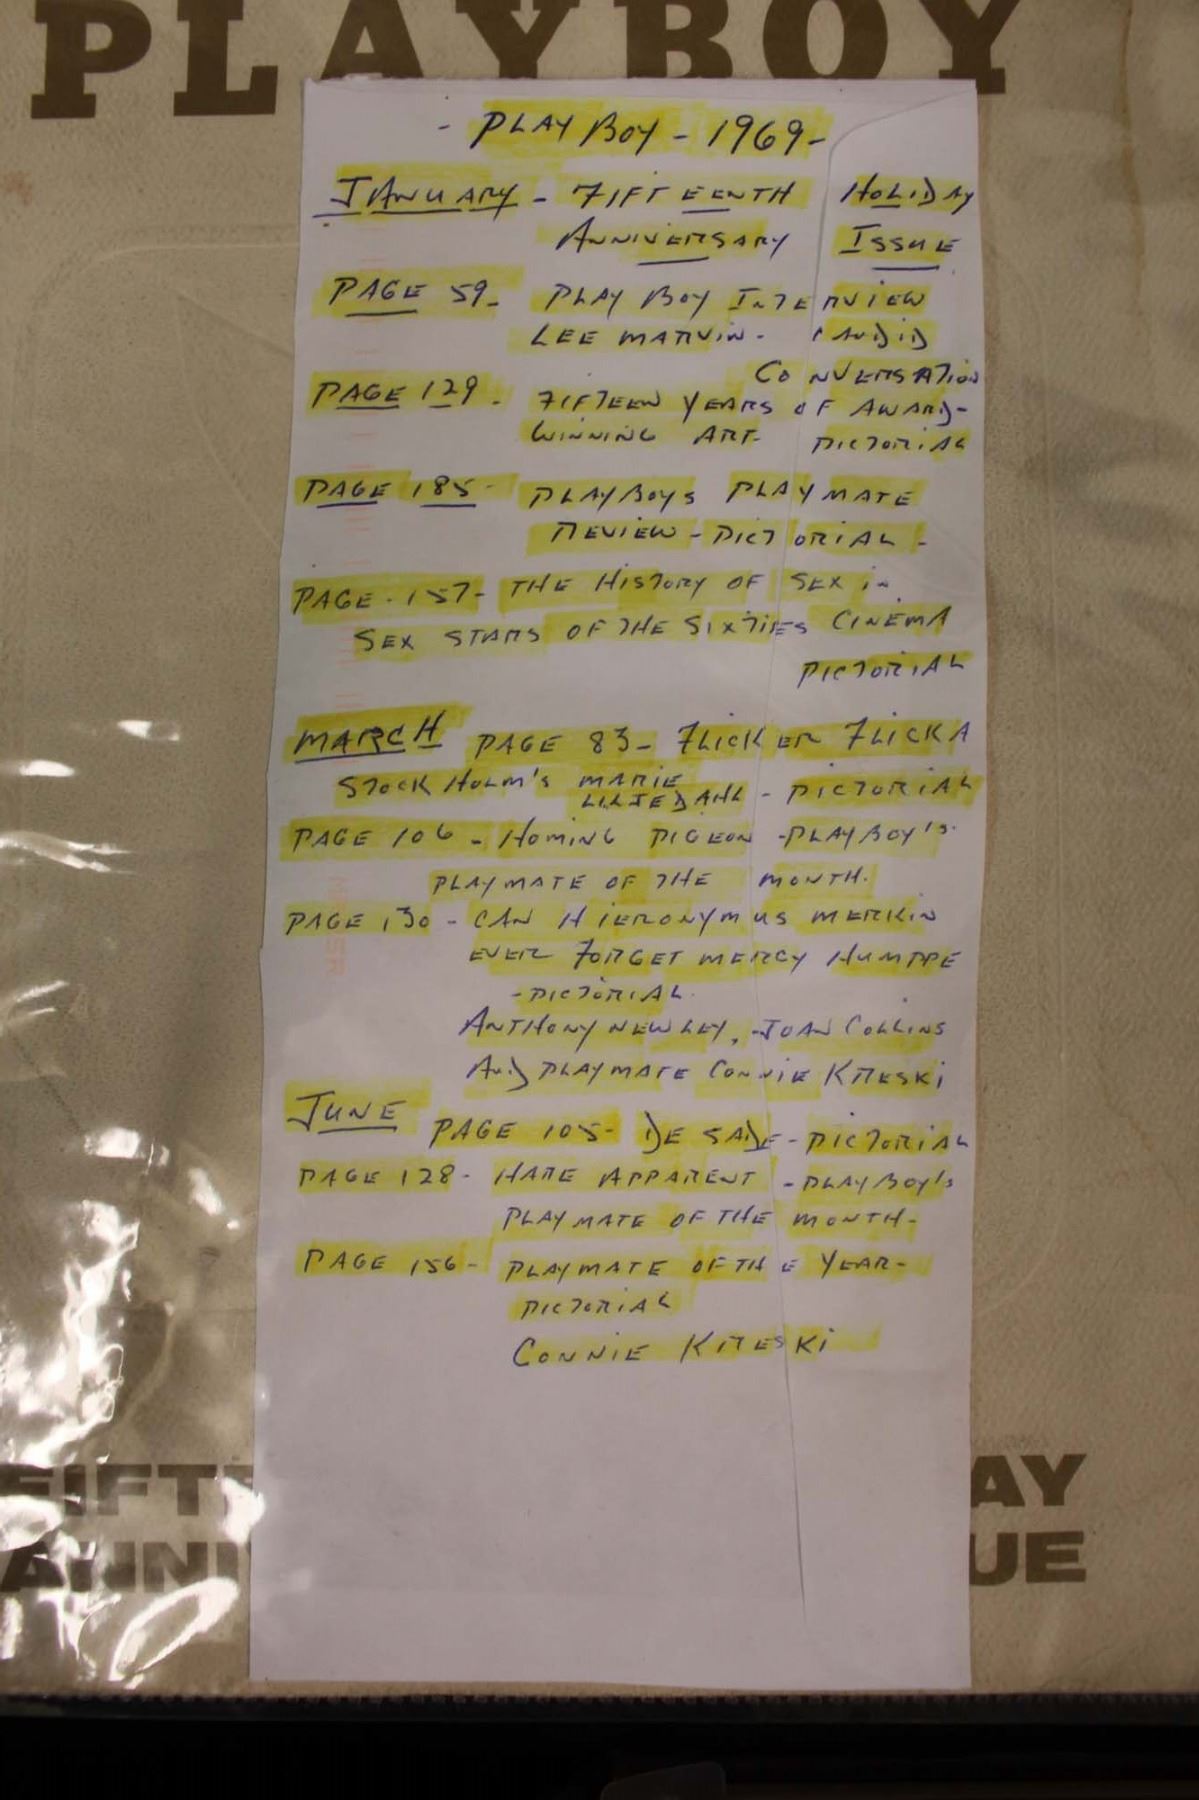 PLAYBOY
- PLAY BOY - 1969 -
JANUARY - FIFTEENTH HOLIDAY
ANNIVERSARY ISSUE
PAGE 59 - PLAY BOY INTERVIEW
LEE MARVIN - CANDID
CONVERSATION
PAGE 129 - FIFTEEN YEARS OF AWARD-
WINNING ART - PICTORIAL
PAGE 185 - PLAYBOYS PLAYMATE
REVIEW - PICTORIAL -
PAGE - 157 - THE HISTORY OF SEX IN
SEX STARS OF THE SIXTIES CINEMA
PICTORIAL
MARCH PAGE 83 - FLICKER FLICKA
STOCKHOLM'S MARIE
LILJEDAHL - PICTORIAL
PAGE 106 - HOMING PIGEON - PLAYBOY'S
PLAYMATE OF THE MONTH.
PAGE 130 - CAN HIERONYMUS MERKIN
EVER FORGET MERCY HUMPPE
- PICTORIAL.
ANTHONY NEWLEY, JOAN COLLINS
AND PLAYMATE CONNIE KRESKI
JUNE PAGE 105 - DE SADE - PICTORIAL
PAGE 128 - HARE APPARENT - PLAYBOY'S
PLAYMATE OF THE MONTH -
PAGE 156 - PLAYMATE OF THE YEAR -
PICTORIAL
CONNIE KRESKI